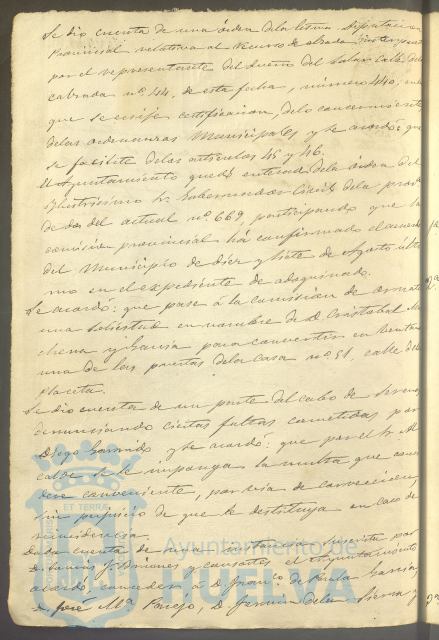 Se dio cuenta de una órden dela Exma. Diputacion
Provincial relativa al recurso de alzada interpuesto
por el representante del dueño del Solar calle del
cabrada nº. 44, de esta fecha, número 440, en
que se exije certificacion, delo concerniente
delas ordenanzas Municipales y se acordó: que
se facilite delos articulos 45 y 46.
El Ayuntamiento quedó enterado dela órden del
Ilustrisimo Sr. Gobernador Civil dela prova.
de dos del actual nº. 669, participando que la
comision provincial ha confirmado el acuerdo
del Municipio de diez y siete de Agosto últi
mo en el expediente de adoquinado.
Se acordó: que pase á la comision de ornato
una solicitud en nombre de D. Cristobal
chena y Garcia para convertir en ventana
una de las puertas dela Casa nº. 51, calle dela
Placeta.
Se dio cuenta de un parte del cabo de serenos
denunciando ciertas faltas cometidas por
Diego Garrido y se acordó: que por el Sr. Al
calde se le imponga la multa que consi
dere conveniente, por via de correccion,
sin perjuicio de que le destituya en caso de
reincidencia.
Dada cuenta de una instancia suscrita por
D. Tomás J. Briones y consortes el Ayuntamiento
acordó conceder á D. Franco. de Paula Garcia,
D. José Ma. Parejo, D. Fermin dela Sierra y
ET TERRÆ
Ayuntamiento de
HUELVA